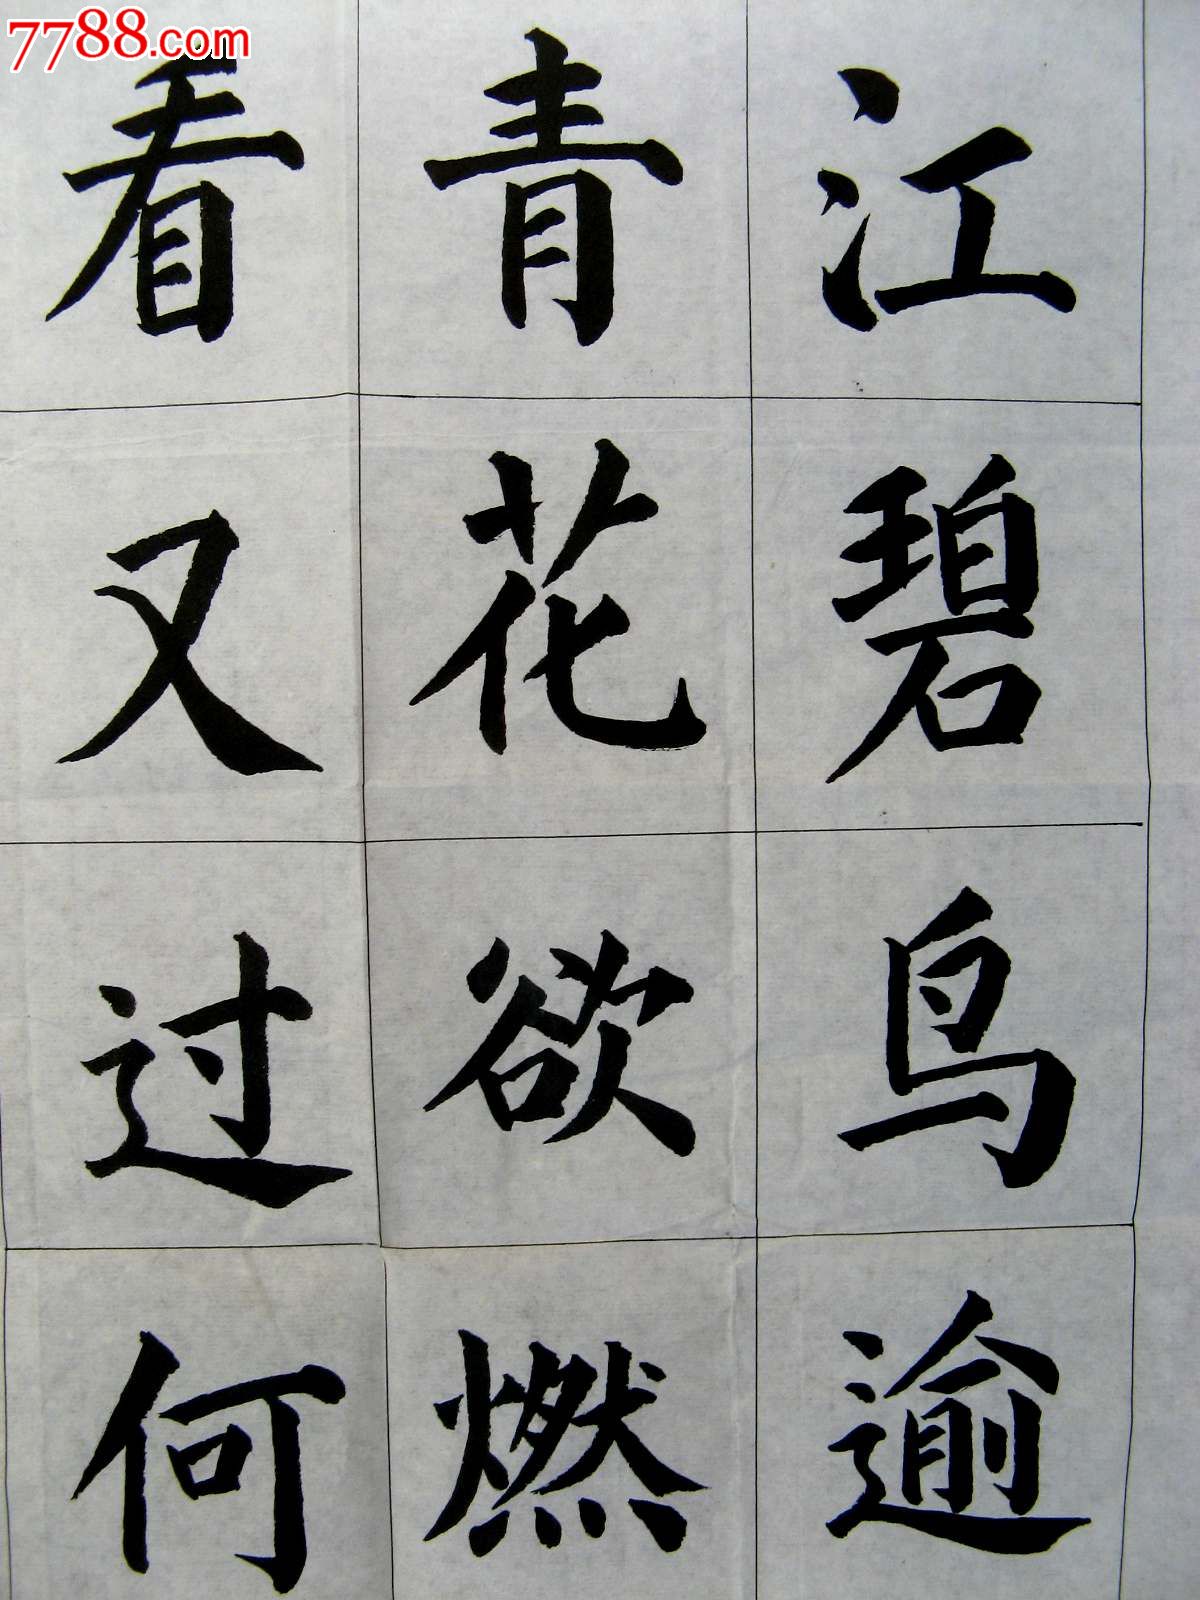 7788.com
江碧鸟逾
青花欲燃
看又过何